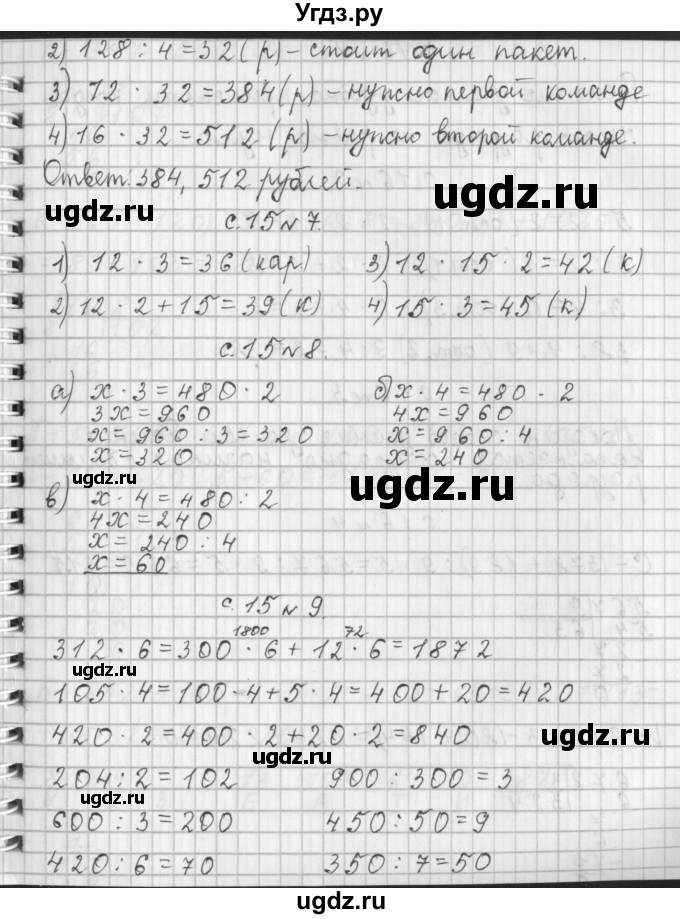 Угдз.ру
2) 128 : 4 = 32 (р) - стоит один пакет.
3) 12 · 32 = 384 (р) - нужно первой команде
4) 16 · 32 = 512 (р) - нужно второй команде.
Ответ: 384, 512 рублей.
ugdz.ru
ugdz.ru
с. 15 N 7.
1) 12 · 3 = 36 (кар) 3) 12 · 15 · 2 = 42 (к)
2) 12 · 2 + 15 = 39 (к) 4) 15 : 3 = 45 (к)
с. 15 N 8.
а) x · 3 = 480 · 2 б) x · 4 = 480 · 2
3x = 960 4x = 960
x = 960 : 3 = 320 x = 960 : 4
x = 320 x = 240
ugdz.ru
ugdz.ru
в) x · 4 = 480 : 2
4x = 240
x = 240 : 4
x = 60
с. 15 N 9.
1800 72
312 · 6 = 300 · 6 + 12 · 6 = 1872
ugdz.ru
105 · 4 = 100 · 4 + 5 · 4 = 400 + 20 = 420
420 · 2 = 400 · 2 + 20 · 2 = 840
ugdz.ru
ugdz.ru
204 : 2 = 102 900 : 300 = 3
ugdz.ru
600 : 3 = 200 450 : 50 = 9
420 : 6 = 70 350 : 7 = 50
ugdz.ru